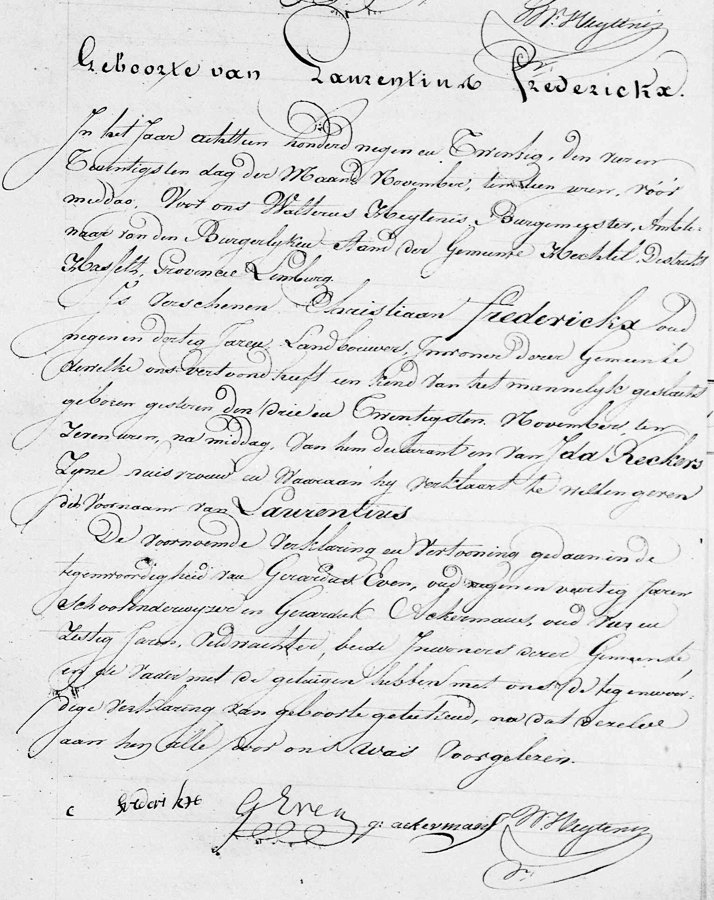 Wr. Heytenis
Geboorte van Laurentius Frederickx.
In het Jaar achttien honderd negen en Twintig, den vier en
Twentigsten dag der Maand November, ten tien uren, vóór
middag, Voor ons Walterus Heytenis, Burgemeester, Ambte-
naar van den Burgerlyken Stand der Gemeente Hechtel, Destrickt
Hasselt, Provincie Limburg.
Is Verschenen Christiaan Frederickx oud
negen en dertig Jaren, Landbouwer, Inwoner dezer Gemeente
dewelke ons vertoond heeft een kind van het mannelyk geslacht
geboren gisteren den drie en Twentigsten November, ten
zeven uren, na middag, van hem declarant en van Ida Keckers
Zyne huisvrouw en Waaraan hy verklaart te willen geven
den Voornaam van Laurentius
De Voornoemde Verklaring en Vertooning gedaan in de
tegenwoordigheid van Gerardus Even, oud negen en veertig Jaren
Schoolonderwyzer en Gerardus Ackermans, oud vier en
Zestig Jaren, Veldwachter, beide Inwoners dezer Gemeente
en de Vader met de getuigen hebben met ons de tegenwoor-
dige verklaring van geboorte geteekend, na dat dezelve
aan hen alle door ons was Voorgelezen.
c frederikx G Even g: ackermans Wr. Heytenis